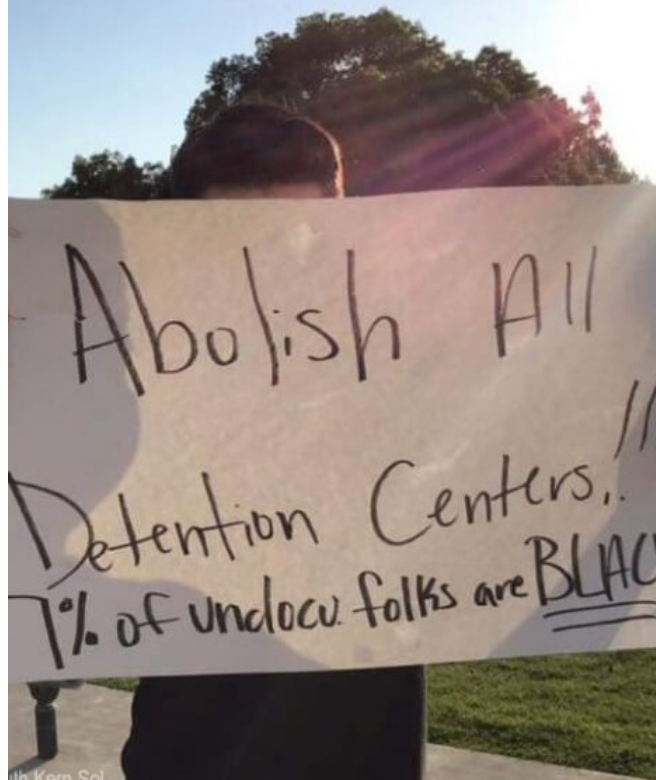 Abolish All
Detention Centers!!
7% of undocu. folks are BLAC
th Kern Sol